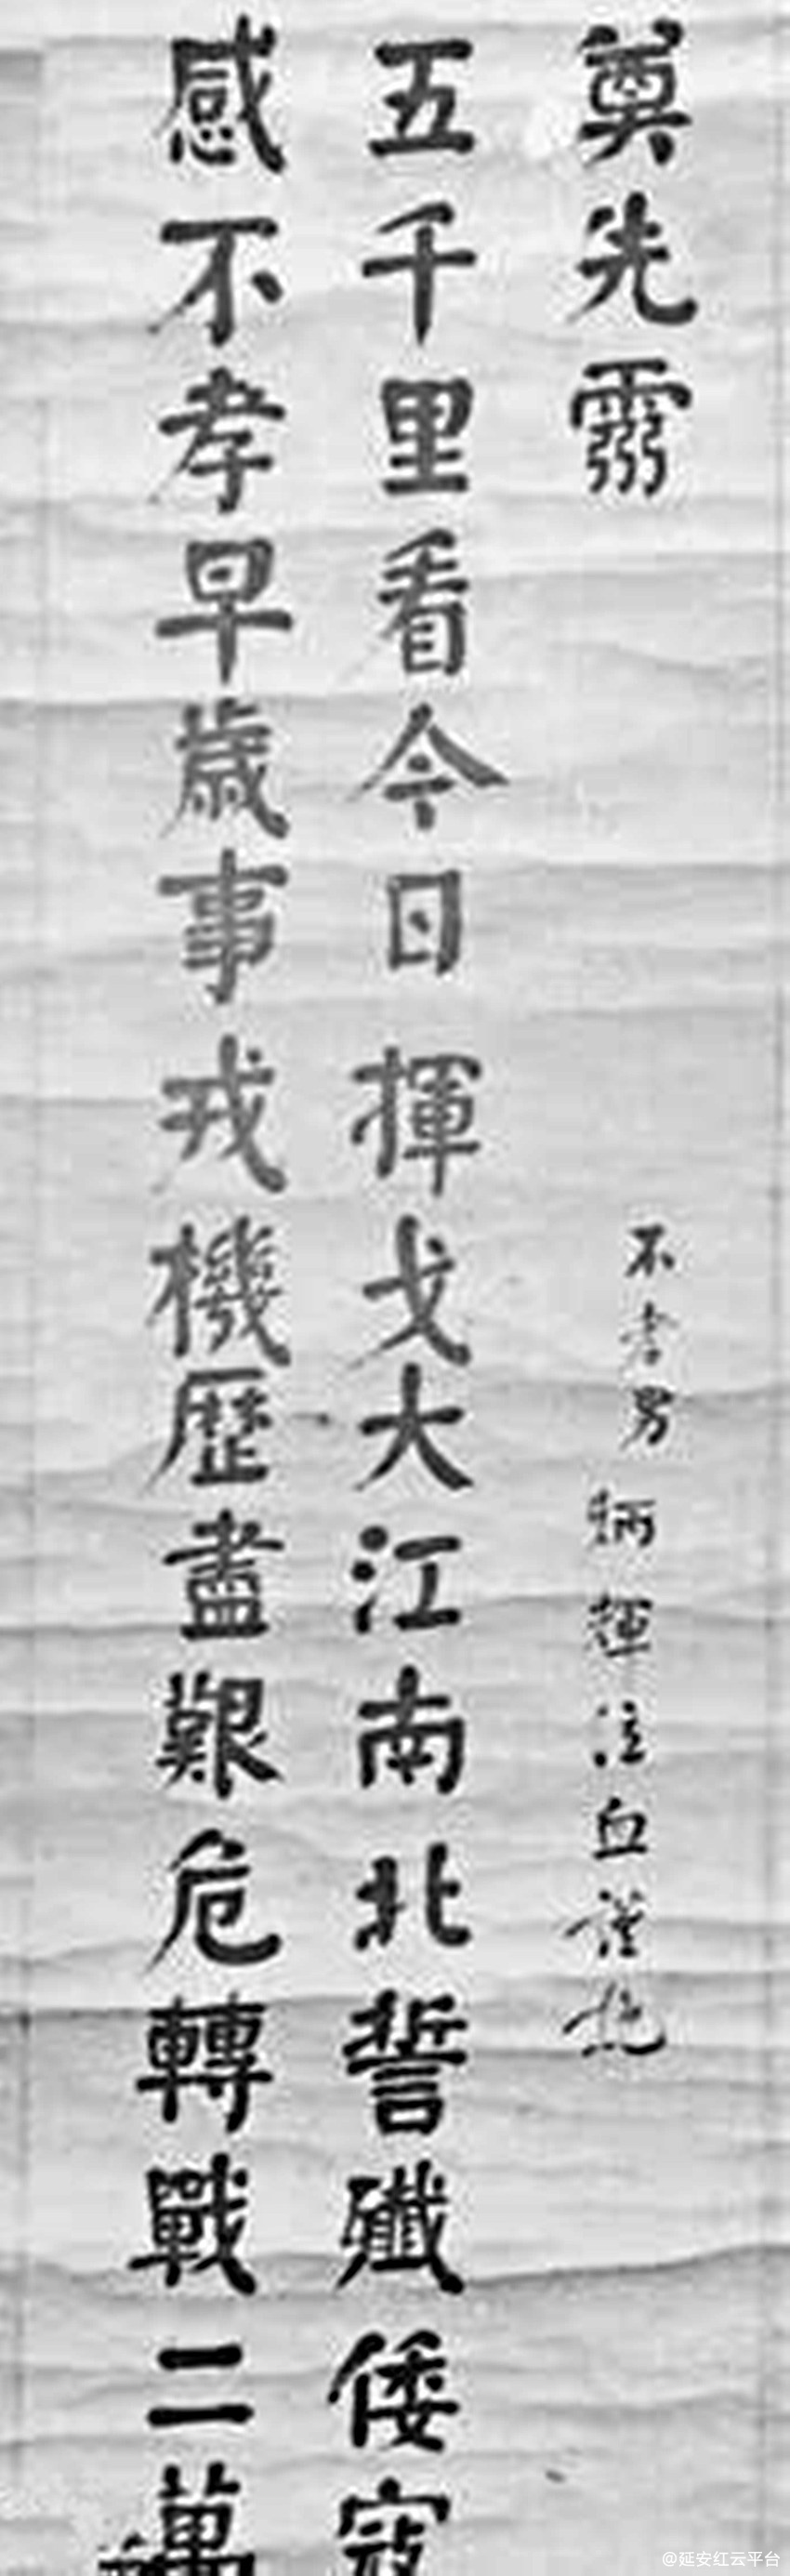 感不孝早歲事戎機歷盡艱危轉戰二萬
五千里看今日揮戈大江南北誓殲倭寇
奠先靈
不孝男
炳輝泣血謹輓
@延安红云平台